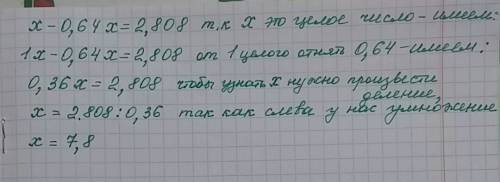 x - 0,64 x = 2,808 т.к х это целое число - имеем:
1x - 0,64 x = 2,808 от 1 целого отнять 0,64 - имеем:
0,36 x = 2,808 чтобы узнать x нужно произвести
деление,
x = 2.808 : 0,36 так как слева у нас умножение
x = 7,8